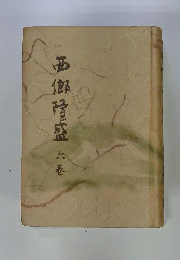 西郷隆盛
六巻